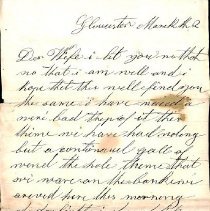 Gloucester March th 2
Dear Wife i let you no that
no that i am well and i
hope that this will find you
the same i have maed a
verri bad theip of it this
thime we have had nothing
but a continuell gale of
wend the hole theime that
wi ware on the bank we
arived her this morning